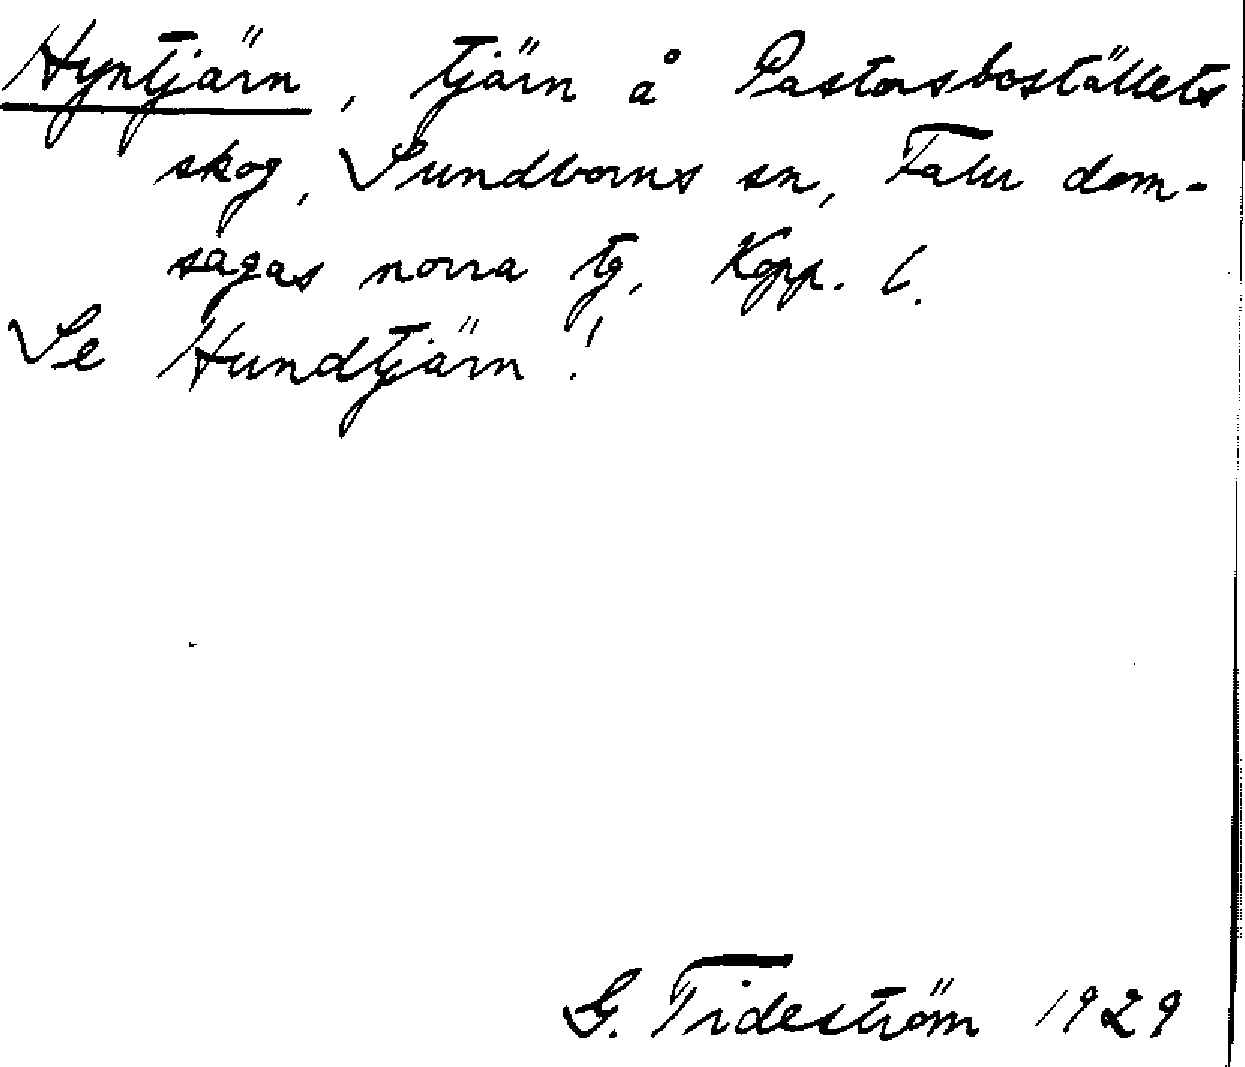 Hyntjärn, tjärn å Pastorsboställets
skog, Sundborns sn, Falu dom-
sagas norra tg, Kopp. l.
Se Hundtjärn!
G. Tideström 1929